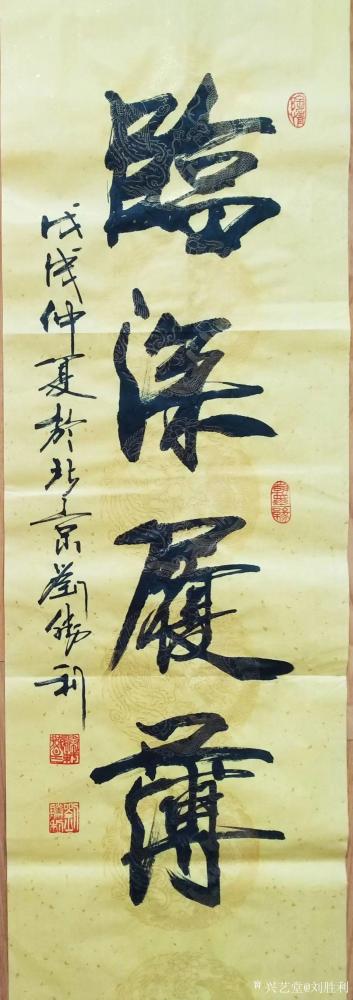 臨深履薄
戊戌仲夏於北京劉勝利
兴艺堂@刘胜利